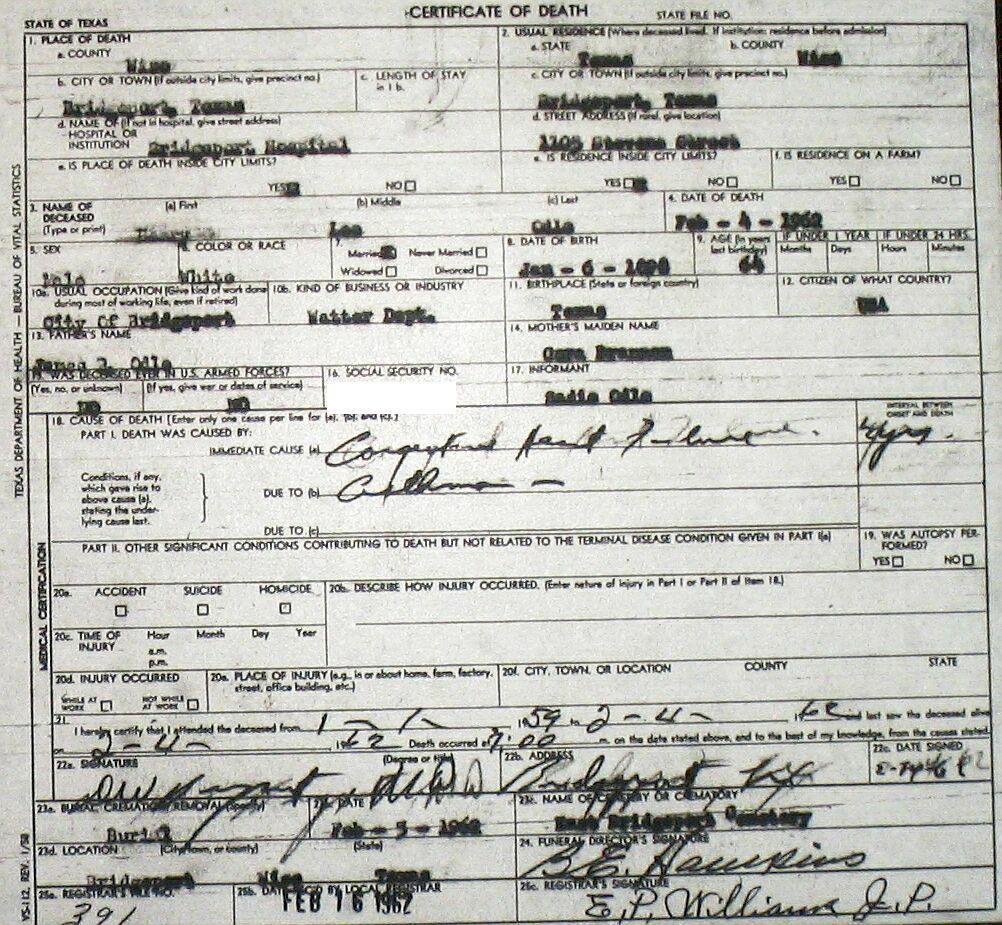 CERTIFICATE OF DEATH
STATE OF TEXAS
STATE FILE NO.
1. PLACE OF DEATH
a. COUNTY
Wise
2. USUAL RESIDENCE (Where deceased lived. If institution: residence before admission)
a. STATE
Texas
b. COUNTY
Wise
b. CITY OR TOWN (If outside city limits, give precinct no.)
Bridgeport, Texas
c. LENGTH OF STAY
in 1 b.
c. CITY OR TOWN (If outside city limits, give precinct no.)
Bridgeport, Texas
d. NAME OF (If not in hospital, give street address)
HOSPITAL OR
INSTITUTION
Bridgeport Hospital
d. STREET ADDRESS (If rural, give location)
1105 Stevens Street
e. IS PLACE OF DEATH INSIDE CITY LIMITS?
YES NO
e. IS RESIDENCE INSIDE CITY LIMITS?
YES NO
f. IS RESIDENCE ON A FARM?
YES NO
3. NAME OF
DECEASED
(Type or print)
(a) First
(b) Middle
Lee
(c) Last
Odle
4. DATE OF DEATH
Feb - 4 - 1962
5. SEX
Male
6. COLOR OR RACE
White
7.
Married Never Married
Widowed Divorced
8. DATE OF BIRTH
Jan - 6 - 1898
9. AGE (In years
last birthday)
64
IF UNDER 1 YEAR
Months Days
IF UNDER 24 HRS.
Hours Minutes
10a. USUAL OCCUPATION (Give kind of work done
during most of working life, even if retired)
City Of Bridgeport
10b. KIND OF BUSINESS OR INDUSTRY
Watter Dept.
11. BIRTHPLACE (State or foreign country)
Texas
12. CITIZEN OF WHAT COUNTRY?
USA
13. FATHER'S NAME
James Odle
14. MOTHER'S MAIDEN NAME
Cora Brannon
15. WAS DECEASED EVER IN U.S. ARMED FORCES?
(Yes, no, or unknown)
NO
(If yes, give war or dates of service)
NO
16. SOCIAL SECURITY NO.
17. INFORMANT
Sadie Odle
18. CAUSE OF DEATH [Enter only one cause per line for (a), (b), and (c).]
PART I. DEATH WAS CAUSED BY:
INTERVAL BETWEEN
ONSET AND DEATH
IMMEDIATE CAUSE (a)
Congestive Heart Failure.
4 yrs.
Conditions, if any,
which gave rise to
above cause (a),
stating the under-
lying cause last.
DUE TO (b)
Asthma -
DUE TO (c)
PART II. OTHER SIGNIFICANT CONDITIONS CONTRIBUTING TO DEATH BUT NOT RELATED TO THE TERMINAL DISEASE CONDITION GIVEN IN PART I(a)
19. WAS AUTOPSY PER-
FORMED?
YES NO
20a. ACCIDENT SUICIDE HOMICIDE
20b. DESCRIBE HOW INJURY OCCURRED. (Enter nature of injury in Part I or Part II of item 18.)
20c. TIME OF
INJURY
Hour Month Day Year
a.m.
p.m.
20d. INJURY OCCURRED
WHILE AT
WORK
NOT WHILE
AT WORK
20e. PLACE OF INJURY (e.g., in or about home, farm, factory,
street, office building, etc.)
20f. CITY, TOWN, OR LOCATION COUNTY STATE
21.
I hereby certify that I attended the deceased from 1-1- 1959 to 2-4- 1962 and last saw the deceased alive
on 2-4- 1962 Death occurred at 7:00 m. on the date stated above, and to the best of my knowledge, from the causes stated.
22a. SIGNATURE (Degree or title)
22b. ADDRESS
Bridgeport Tex
22c. DATE SIGNED
23a. BURIAL, CREMATION, REMOVAL (Specify)
Burial
23b. DATE
Feb - 5 - 1962
23c. NAME OF CEMETERY OR CREMATORY
East Bridgeport Cemetery
23d. LOCATION (City, town, or county) (State)
Bridgeport Wise Texas
24. FUNERAL DIRECTOR'S SIGNATURE
B.E. Hawkins
25a. REGISTRAR'S FILE NO.
391
25b. DATE REC'D BY LOCAL REGISTRAR
FEB 16 1962
25c. REGISTRAR'S SIGNATURE
E.P. Williams J.P.
TEXAS DEPARTMENT OF HEALTH — BUREAU OF VITAL STATISTICS
MEDICAL CERTIFICATION
VS-112 REV. 1/58